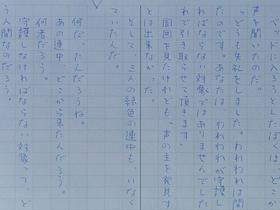 っと入ろうしたぼくは、どこか
声を聞いたのだ。
「どうも失礼をしました。われわれは間
たのです。あなたは、われわれが守護し
ればならない対象ではありませんでした
れで引き取らせて頂きます」
周囲を見たけれども、声の主を発見す
とは出来なかった。
そして、三人の銀色の連中も、いなく
ていたんだ。
何だ、たんだろうね。
あの連中、どこから来たんだろう。
何者だろう。
守護しなければならない対象って、ど
う人間なのだろう。